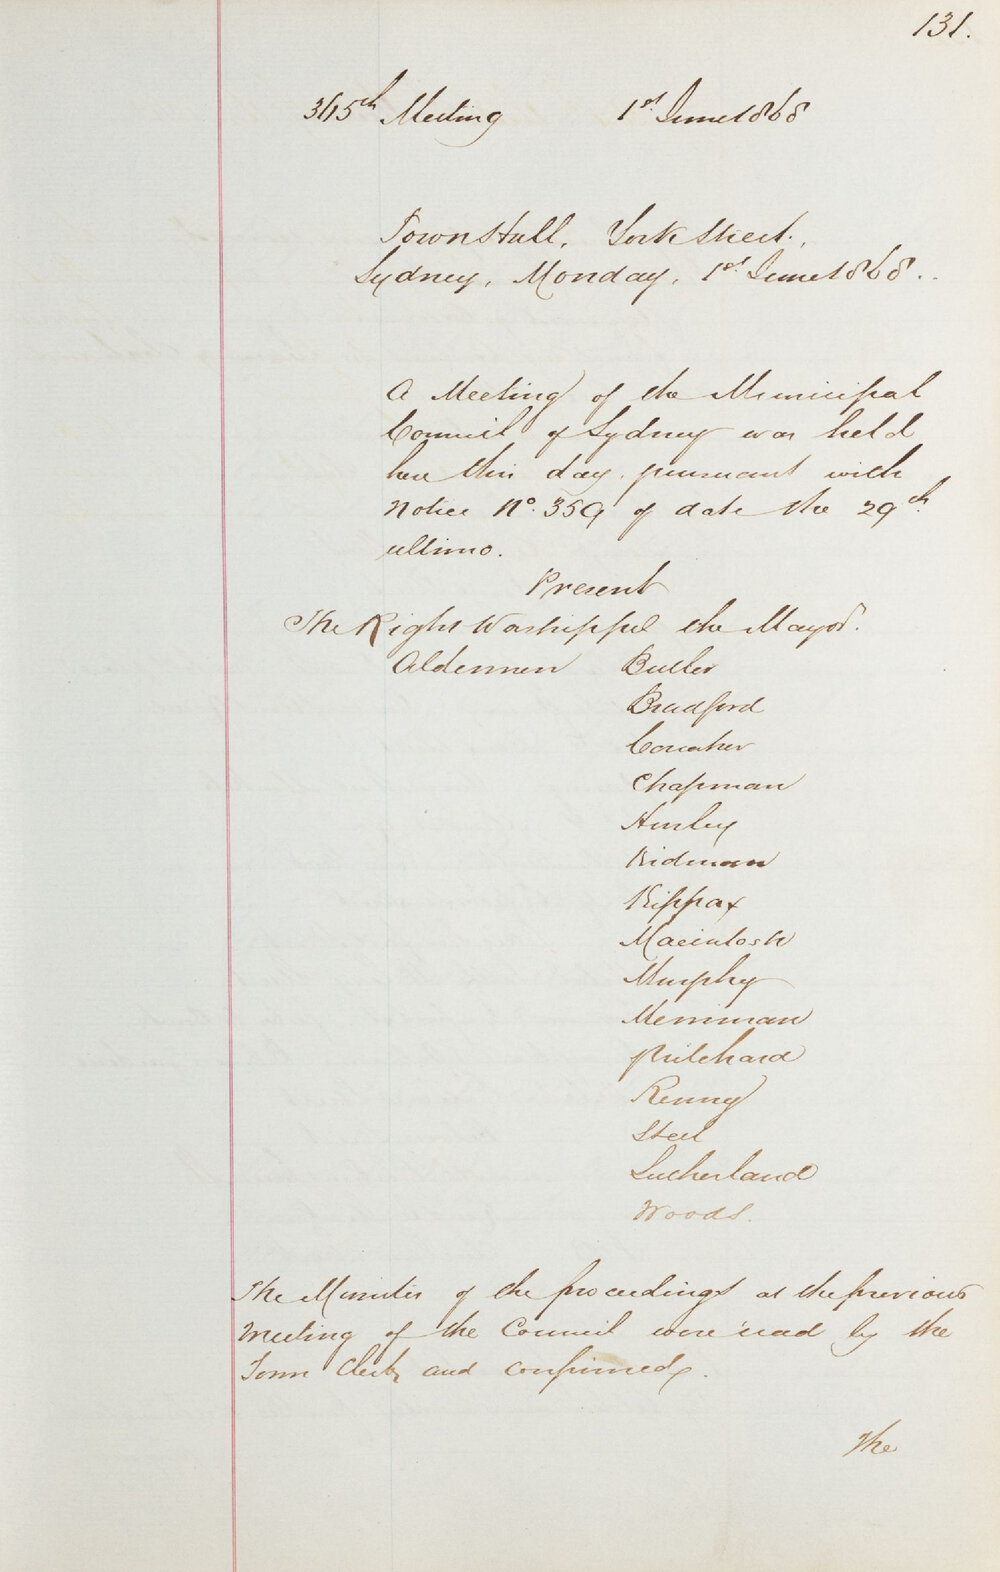 131.
345th Meeting 1st June 1868
Town Hall, York Street,
Sydney, Monday, 1st June 1868.
A Meeting of the Municipal
Council of Sydney was held
here this day pursuant with
Notice No. 359 of date the 29th
ultimo.
Present
The Right Worshipful the Mayor.
Aldermen Butler
Bradford
Conaher
Chapman
Hurley
Kidman
Kippax
Macintosh
Murphy
Merriman
Pritchard
Renny
Steel
Sutherland
Woods.
The Minutes of the proceedings at the previous
Meeting of the Council were read by the
Town Clerk and confirmed.
The